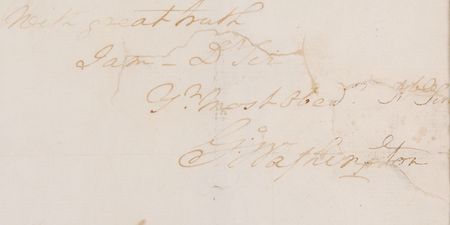 With great truth
I am – Dr Sir
Yr most Obedt Hble Ser
Go: Washington